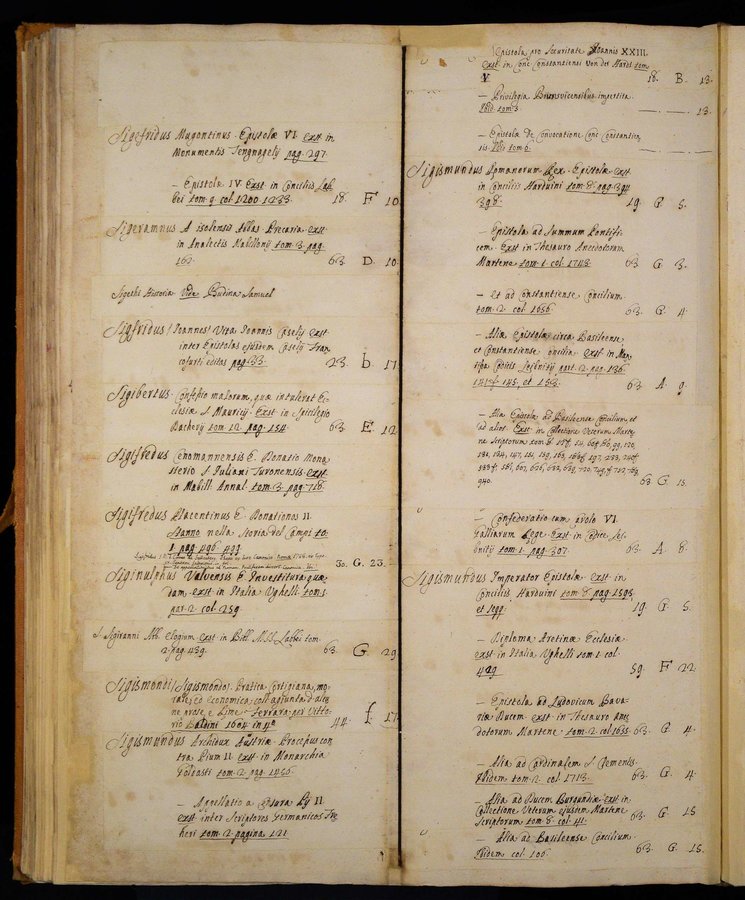 Sigefridus Magontinus. Epistolæ VI. exst. in
Monumentis Tengnagelij pag. 297.
— Epistolæ IV. Exst. in Concilijs Lab
bei tom. 9. col. 1200. 1233. 18. F 10
Sigeramnus A Abbas. Precaria exst.
in Analectis Mabillonij tom. 3. pag.
162. 63. D. 10
Sigethi Historia Vide Budina Samuel
Sigfridus / Joannes / Vita Joannis Caselij exst.
inter Epistolas ejusdem Caselij Fran
cofurti editas pag. 33. 23. b. 17
Sigibertus. Confessio malorum, quæ intulerat Ec
clesiæ S. Mauricij. Exst. in Spicilegio
Dacherij tom. 12. pag. 154. 63. E. 12
Sigifredus Cenomannensis E. Donatio Mona
sterio S. Juliani Turonensis exst.
in Mabill. Annal. tom. 3. pag. 718.
Sigifredus Placentinus E. Donationes II.
Stanno nella Storia del Campi to.
1. pag. 496. 499.
30. G. 23.
Siginulphus Valvensis E. Investitura quæ
dam. exst. in Italia Ughelli. tom. 1.
par. 2. col. 259
S. Sigiranni Abb. Elogium. Exst. in Bibl. M.SS. Labbei tom.
2. pag. 439. 63. G. 29
Sigismondi / Sigismondo / Pratica Cortigiana, mo
rale, ed economica, coll'aggiunta d'alcu
ne prose, e Rime. Ferrara per Vitto
rio Baldini 1604. in 4.º 44. f. 17
Sigismundus Archidux Austriæ. Processus con
tra Pium II. exst. in Monarchia
Goldasti tom. 2. pag. 1436.
— Appellatio a Pij II.
exst. inter Scriptores Germanicos Fre
heri tom. 2. pagina 121
— Epistola pro securitate Joannis XXIII.
exst. in Conc. Constantiensi Von der Hardt tom.
V 18. B. 13.
— Privilegia Brunsvicensibus impertita.
Ibid. tom. 3. 13.
— Epistola De Convocatione Conc. Constantien
sis. Ibi tom. 6.
Sigismundus Romanorum Rex. Epistolæ exst.
in Concilijs Harduini tom. 8. pag. 394
398. 19. G. 5.
— Epistola ad Summum Pontifi
cem. Exst. in Thesauro Anecdotorum
Martene tom. 1. col. 1743. 63 G 3.
— Et ad Constantiense Concilium.
tom. 2. col. 1656. 63. G. 4.
— Aliæ Epistolæ circa Basileense,
et Constantiense Concilia exst. in Man
tissa Codicis Leibnitij part. 2. pag. 136.
145. et 153. 63. A. 9.
— Alia Epistola ad Basileense Concilium et
ad alios. Exst. in Collectione Veterum Marte
ne Scriptorum tom. 8.
940. 63. G. 15.
— Confederatio cum Carolo VI.
Galliarum Rege. exst. in Codice Lei
bnitij tom. 1. pag. 307. 63. A. 8.
Sigismundus Imperator Epistolæ. Exst. in
Concilijs Harduini tom. 8. pag. 1595
et seqq. 19. G. 5.
— Diploma Aretinæ Ecclesiæ.
exst. in Italia Ughelli tom. 1. col.
429 59. F 22.
— Epistola ad Ludovicum Bava
riæ Ducem. exst. in Thesauro Anec
dotorum Martene. tom. 2. col. 1655. 63. G. 4.
— Alia ad Cardinalem S. Clementis.
Ibidem tom. 2. col. 1713. 63. G. 4.
— Alia ad Ducem Burgundiæ exst. in
Collectione Veterum ejusdem Martene
Scriptorum tom. 8. col. 41. 63. G. 15
— Alia ad Basileense Concilium.
Ibidem col. 106. 63. G. 15.